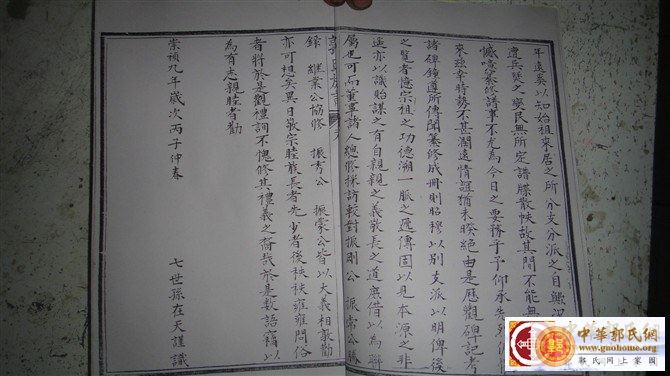 年遠奚以知始祖來居之所分支分派之自興
遭兵燹之變民無所定譜牒散帙故其間不能無
憾噫纂修譜事不尤為今日之要務乎予仰承先
來珠幸時勢不甚濶遠情誼猶未睽絕由是歷觀碑記考
諸碑鐘遵所傳聞纂修成冊則昭穆以別支派以明俾後
之覽者憶宗祖之功德溯一脈之遞傳固以見本源之非
遠亦以識貽謀之有自親親之義敬長之道庶借以為聯
屬也可而董事諸人總修採訪較對振剛公 振常公
錄 維業公協修 振秀公 振棠公皆以大義相敦勸
亦可想矣異日敬宗睦族長者先少者後秩秩雍雍問俗
者將於是觀禮詞不愧修其禮義之裔哉於是數語竊以
為有志親睦者勸
崇禎九年歲次丙子仲春 七世孫在天謹識
中華郭氏網
www.guohome.org
郭氏网上家園